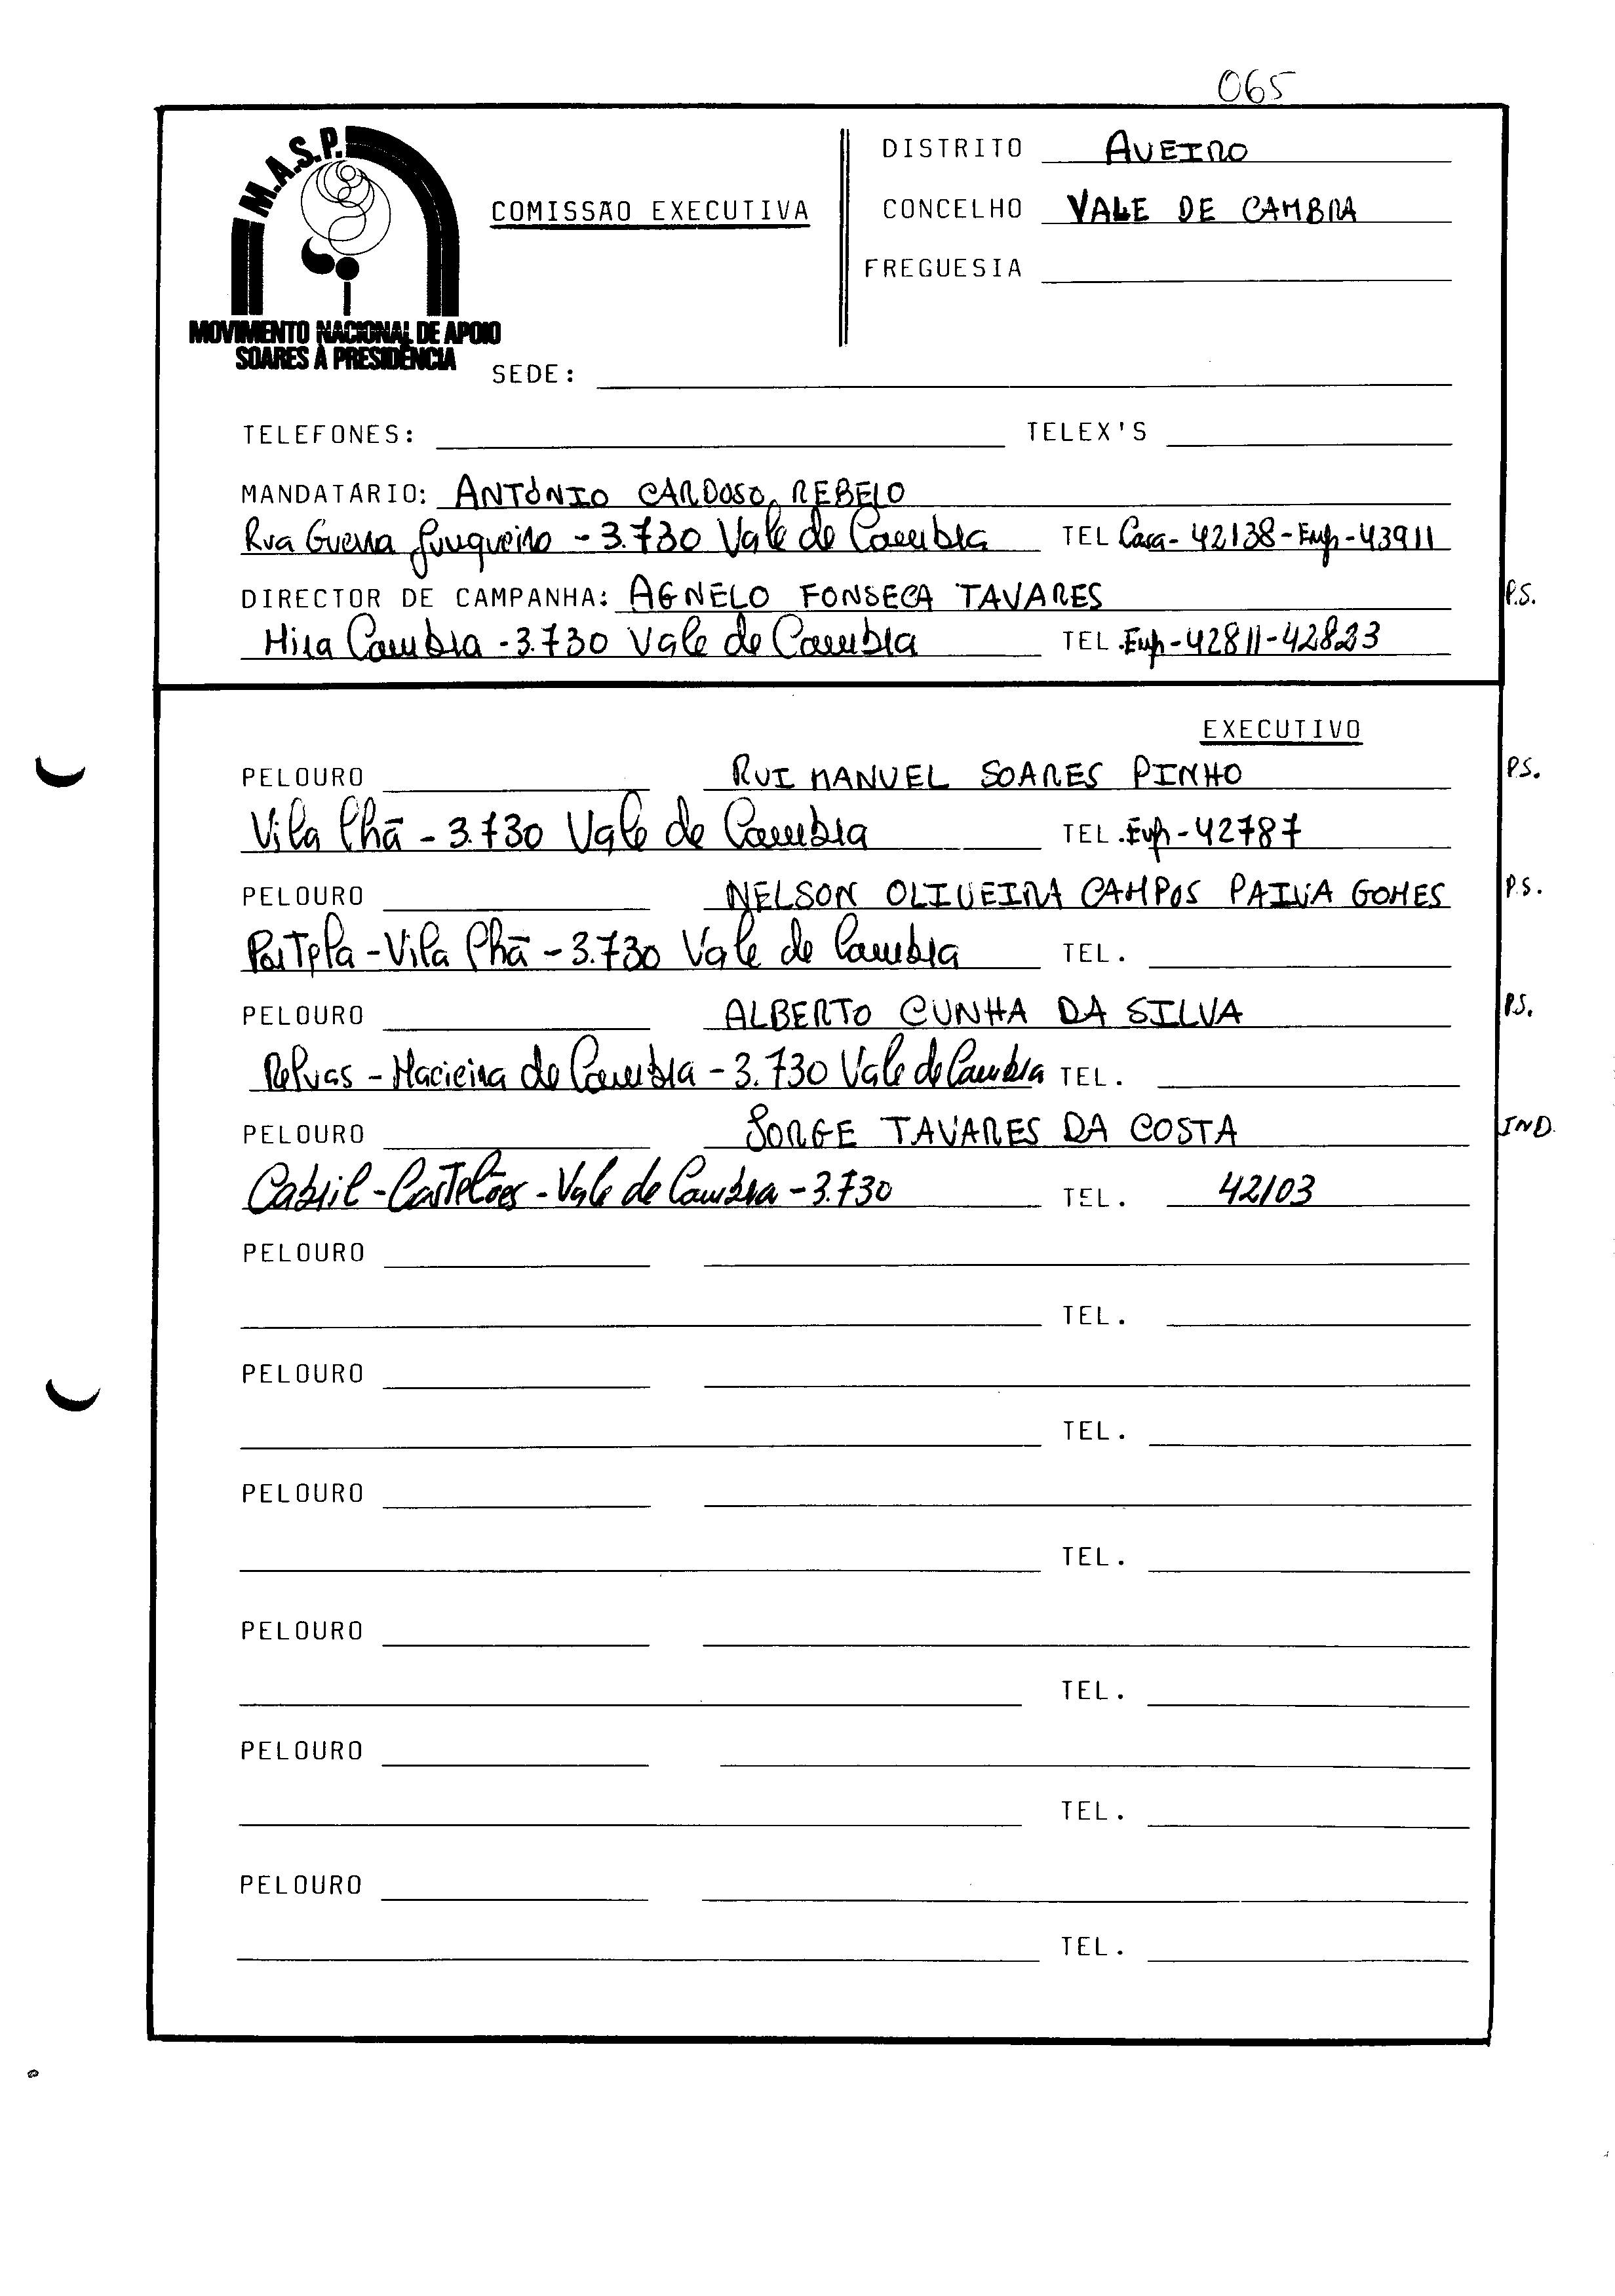 065
M.A.S.P.
MOVIMENTO NACIONAL DE APOIO
SOARES À PRESIDÊNCIA
COMISSÃO EXECUTIVA
DISTRITO AVEIRO
CONCELHO VALE DE CAMBRA
FREGUESIA
SEDE:
TELEFONES: TELEX'S
MANDATÁRIO: ANTÓNIO CARDOSO REBELO
Rua Guerra Junqueiro - 3.730 Vale de Cambra TEL Casa - 42138 - Emp - 43911
DIRECTOR DE CAMPANHA: AGNELO FONSECA TAVARES P.S.
Mira Cambra - 3.730 Vale de Cambra TEL. Emp - 42811 - 42823
EXECUTIVO
PELOURO RUI MANUEL SOARES PINHO P.S.
Vila Chã - 3.730 Vale de Cambra TEL. Emp - 42787
PELOURO NELSON OLIVEIRA CAMPOS PAIVA GOMES P.S.
Portela - Vila Chã - 3.730 Vale de Cambra TEL.
PELOURO ALBERTO CUNHA DA SILVA P.S.
Relvas - Macieira de Cambra - 3.730 Vale de Cambra TEL.
PELOURO JORGE TAVARES DA COSTA IND.
Cabril - Castelões - Vale de Cambra - 3.730 TEL. 42103
PELOURO
TEL.
PELOURO
TEL.
PELOURO
TEL.
PELOURO
TEL.
PELOURO
TEL.
PELOURO
TEL.